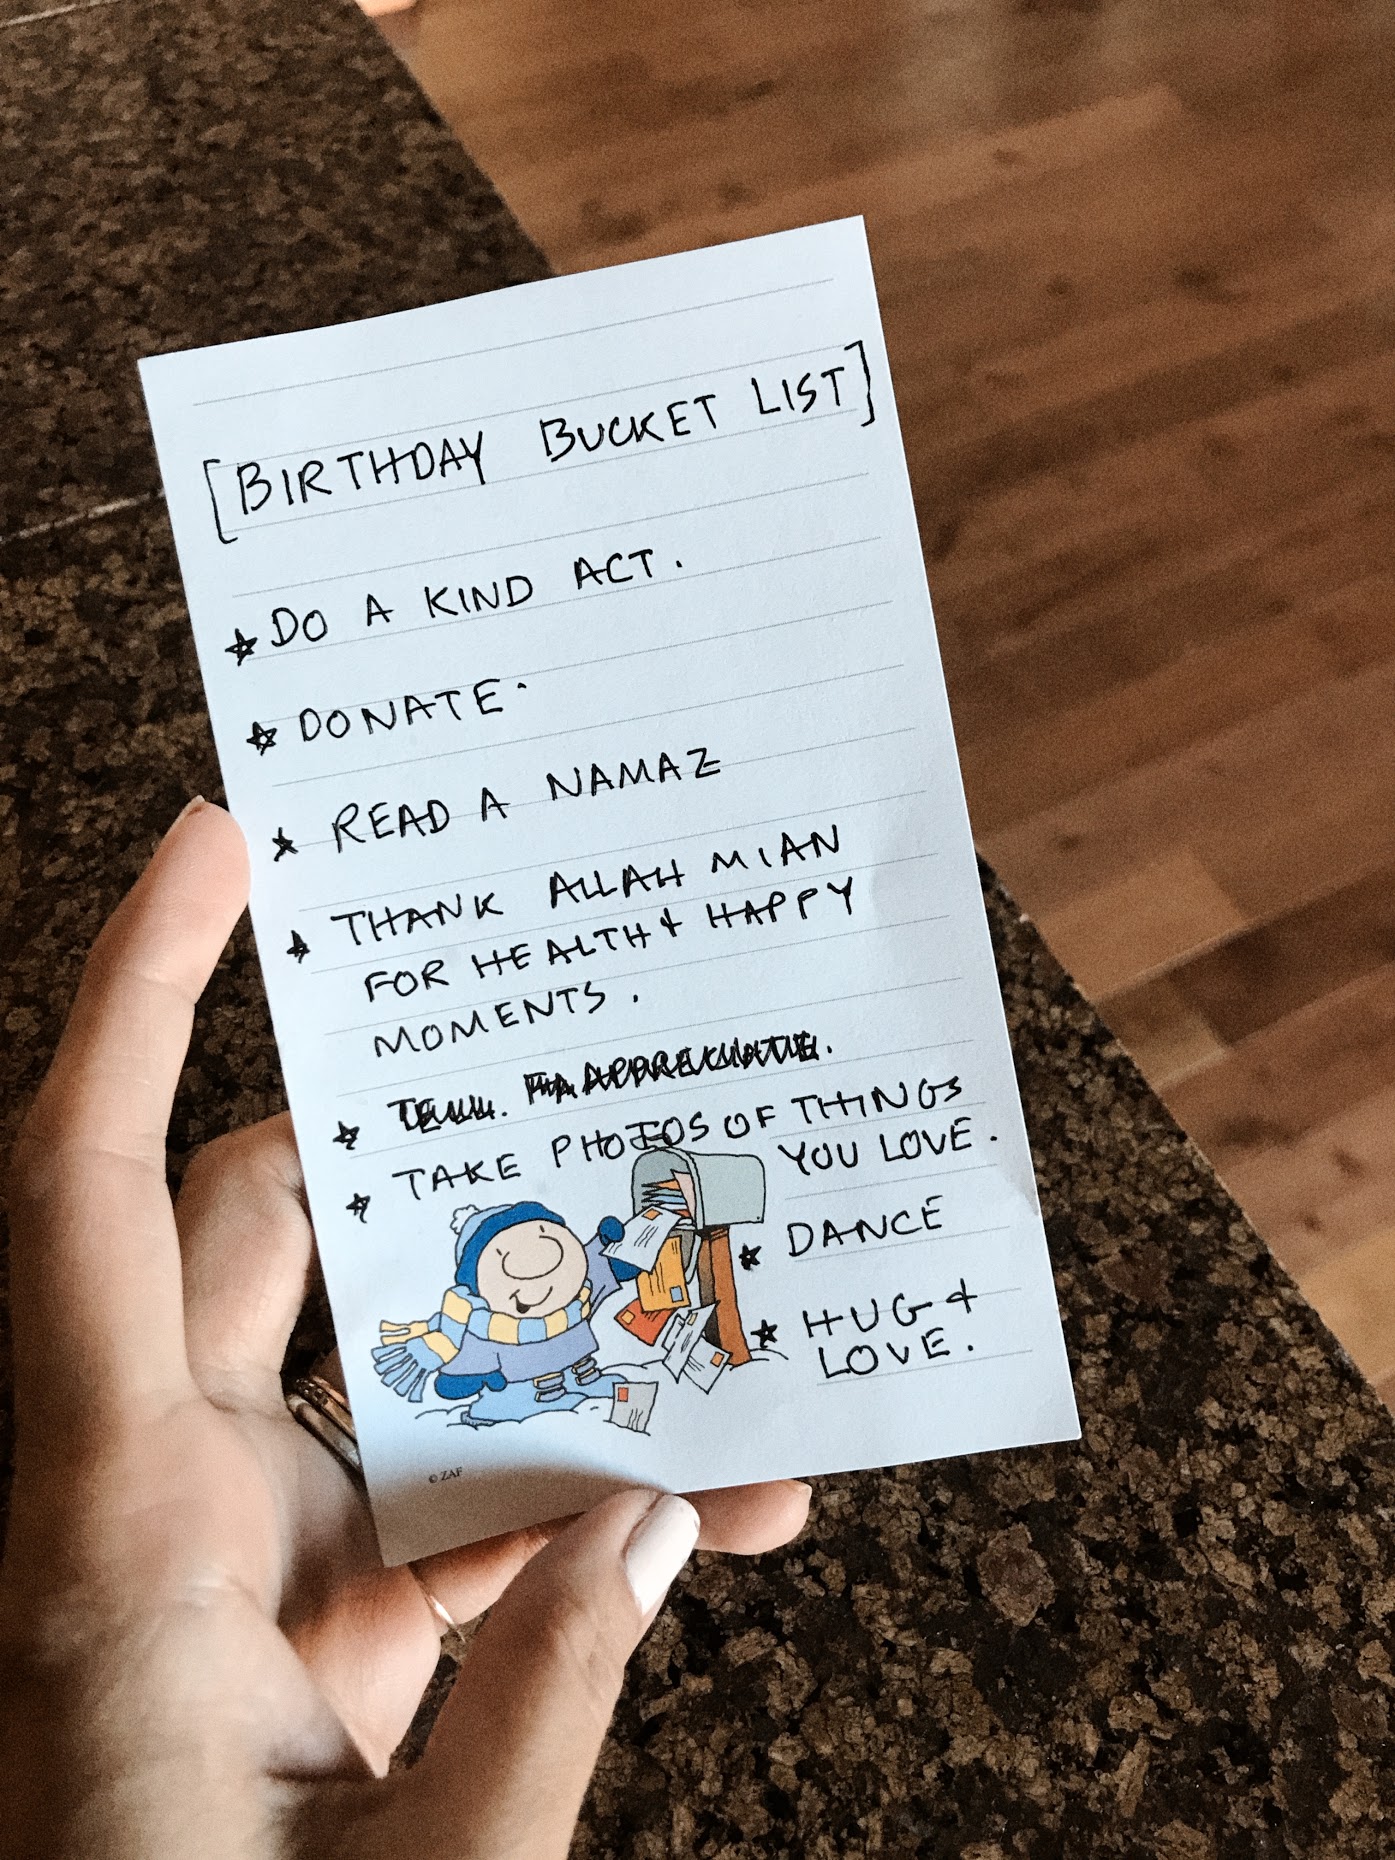 [BIRTHDAY BUCKET LIST]
DO A KIND ACT.
DONATE.
READ A NAMAZ
THANK ALLAH MIAN
FOR HEALTH & HAPPY
MOMENTS.
TAKE PHOTOS OF THINGS
YOU LOVE.
DANCE
HUG &
LOVE.
© ZAF